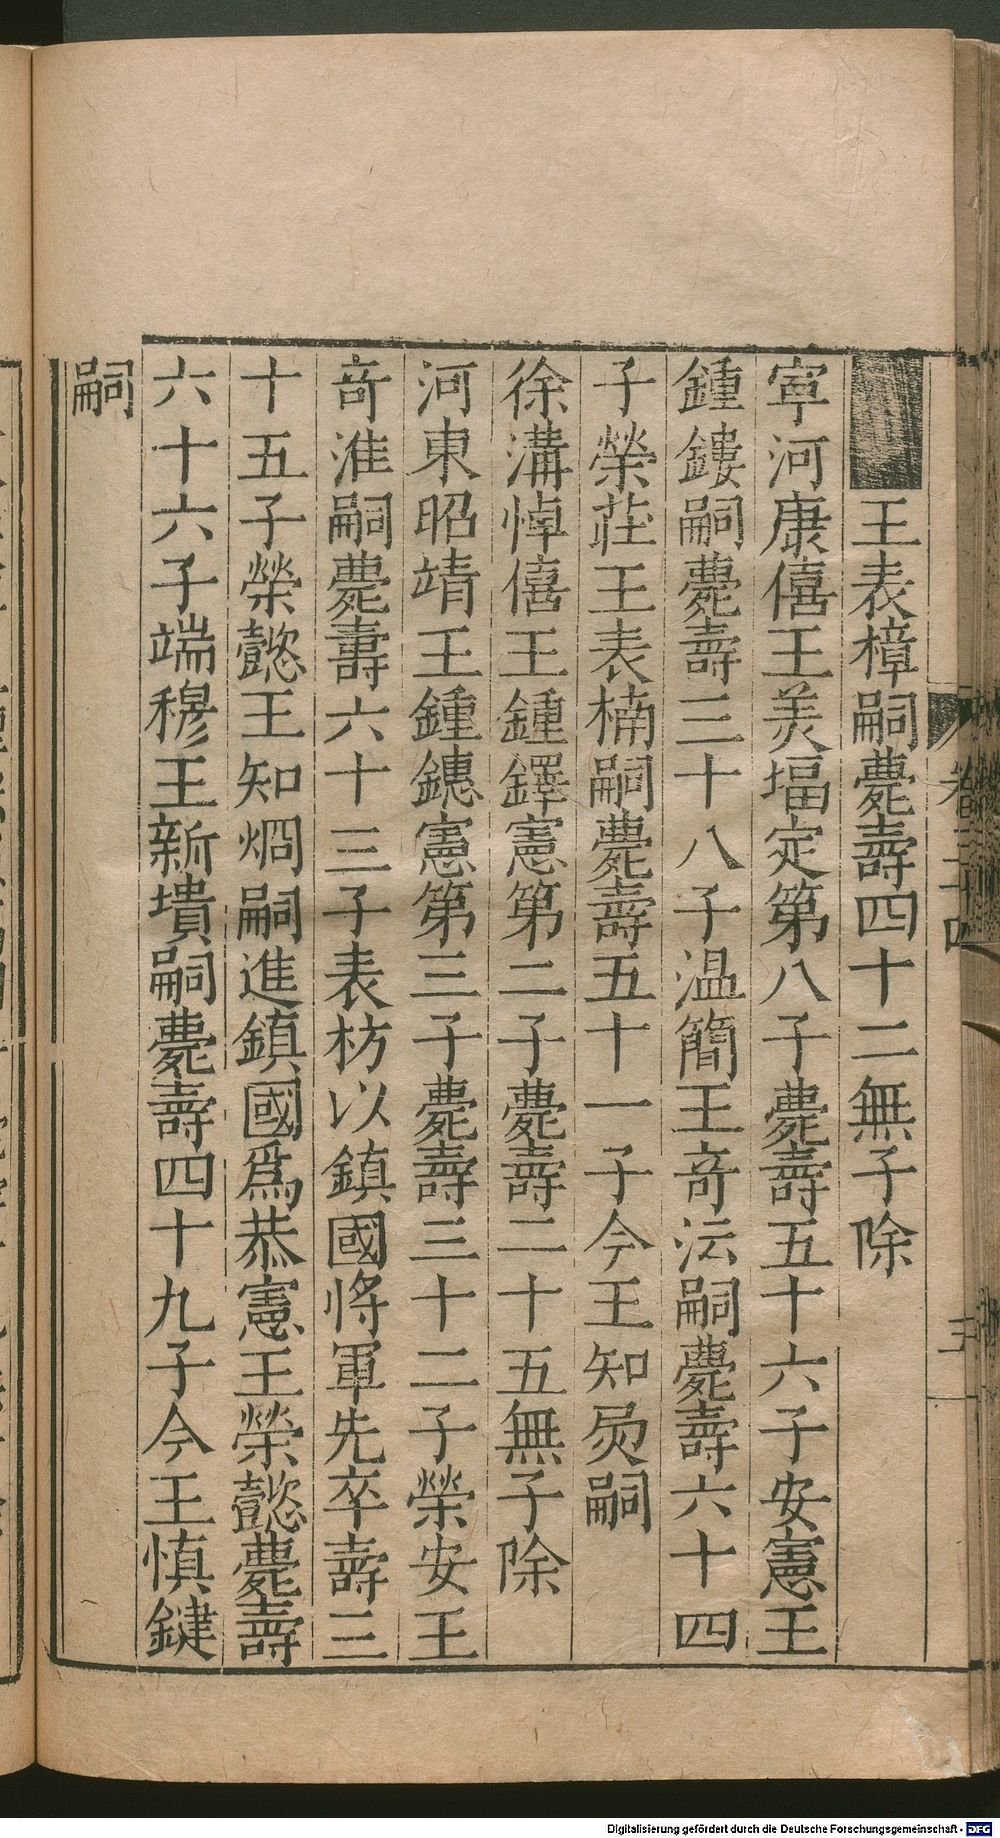 王表樟嗣薨壽四十二無子除
寧河康僖王美堛定第八子薨壽五十六子安憲王
鍾鏤嗣薨壽三十八子温簡王竒沄嗣薨壽六十四
子榮莊王表楠嗣薨壽五十一子今王知㷇嗣
徐溝悼僖王鍾鐸憲第二子薨壽二十五無子除
河東昭靖王鍾鏸憲第三子薨壽三十二子榮安王
竒淮嗣薨壽六十三子表枋以鎮國將軍先卒壽三
十五子榮懿王知㶽嗣進鎮國爲恭憲王榮懿薨壽
六十六子端穆王新墤嗣薨壽四十九子今王慎鍵
嗣
卷三十四
三
Digitalisierung gefördert durch die Deutsche Forschungsgemeinschaft - DFG